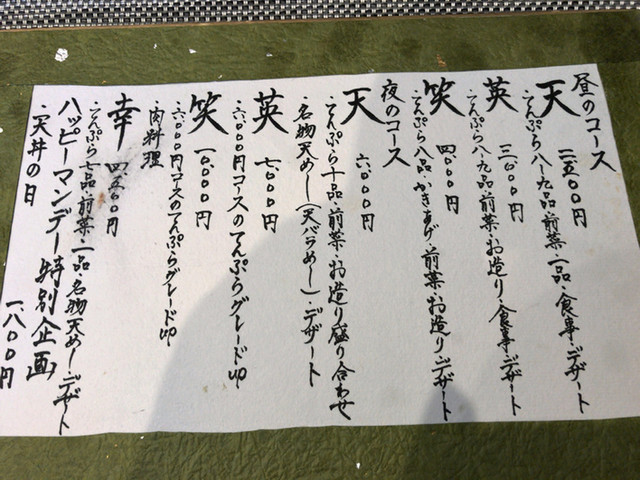 昼のコース
天 二、五〇〇円
・てんぷら八〜九品・前菜一品・食事・デザート
英 三、〇〇〇円
・てんぷら八〜九品・前菜・お造り・食事・デザート
笑 四、〇〇〇円
・てんぷら八品・かきあげ・前菜・お造り・デザート
夜のコース
天 六、〇〇〇円
・てんぷら十品・前菜・お造り盛り合わせ
・名物天めし(天バラめし)・デザート
英 七、〇〇〇円
・六、〇〇〇円コースのてんぷらグレードup
笑 一〇、〇〇〇円
・六、〇〇〇円コースのてんぷらグレードup
・肉料理
幸 四、五〇〇円
・てんぷら十品・前菜一品・名物天めし・デザート
ハッピーマンデー特別企画
・天丼の日 一、八〇〇円